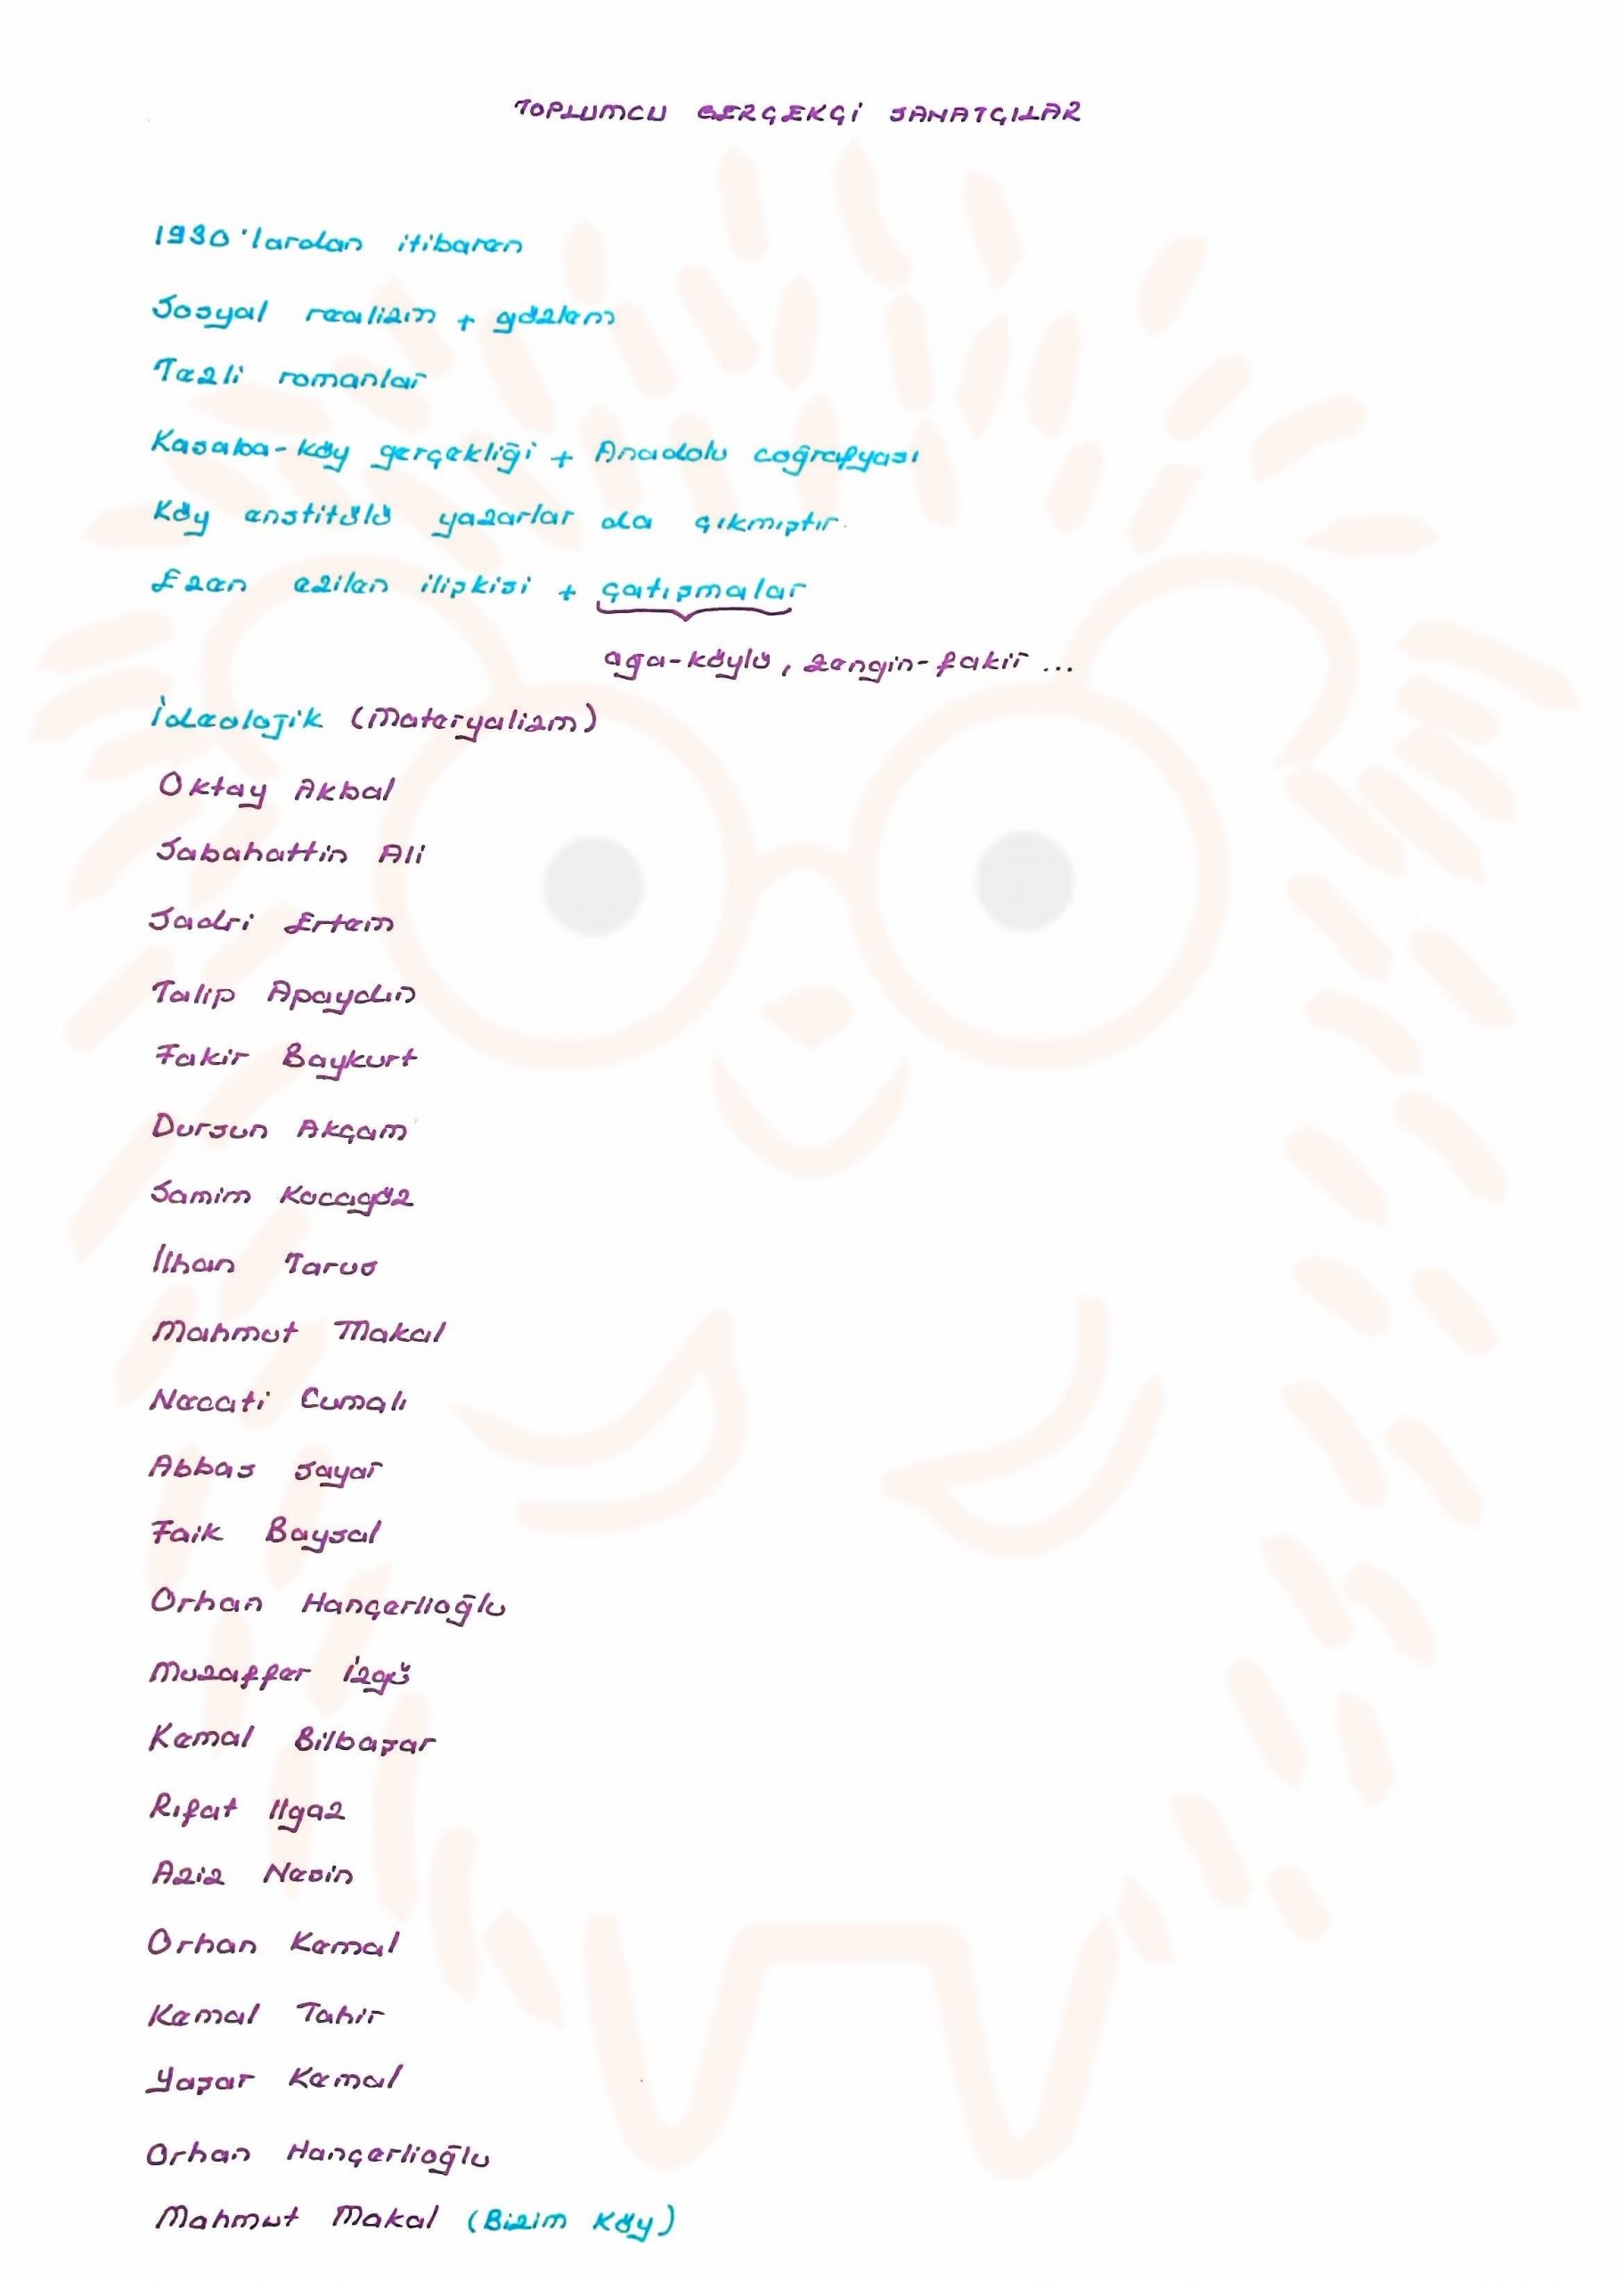 TOPLUMCU GERÇEKÇİ SANATÇILAR
1930'lardan itibaren
Sosyal realizm + gözlem
Tezli romanlar
Kasaba-köy gerçekliği + Anadolu coğrafyası
Köy enstitülü yazarlar da çıkmıştır.
Ezen ezilen ilişkisi + çatışmalar
ağa-köylü, zengin-fakir ...
İdeolojik (Materyalizm)
Oktay Akbal
Sabahattin Ali
Sadri Ertem
Talip Apaydın
Fakir Baykurt
Dursun Akçam
Samim Kocagöz
İlhan Tarus
Mahmut Makal
Necati Cumalı
Abbas Sayar
Faik Baysal
Orhan Hançerlioğlu
Muzaffer İzgü
Kemal Bilbaşar
Rıfat Ilgaz
Aziz Nesin
Orhan Kemal
Kemal Tahir
Yaşar Kemal
Orhan Hançerlioğlu
Mahmut Makal (Bizim Köy)